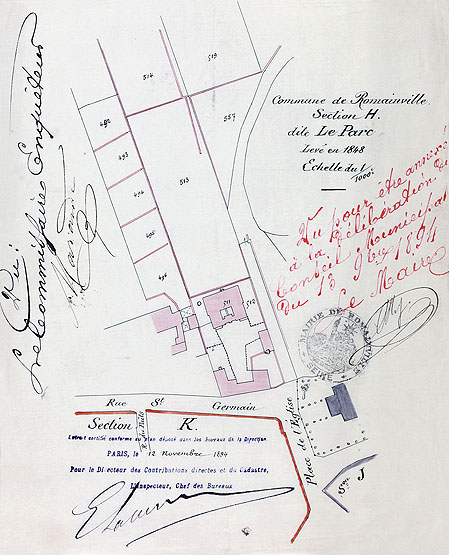 Commune de Romainville.
Section H.
dite Le Parc
Levé en 1848
Echelle du 1/1000.
514
519
557
492
493
494
495
496
513
511
512
Vu :
Le Commissaire Enquêteur
Vu pour être annexé
à la délibération du
Conseil Municipal
du 15 9bre 1894
Le Maire
MAIRIE DE ROMAINVILLE
SEINE
Rue St Germain
Section K.
Place de l'Eglise
Son J
Extrait certifié conforme au plan déposé dans les bureaux de la Direction
PARIS, le 12 Novembre 1894
Pour le Directeur des Contributions directes et du Cadastre,
L'Inspecteur, Chef des Bureaux